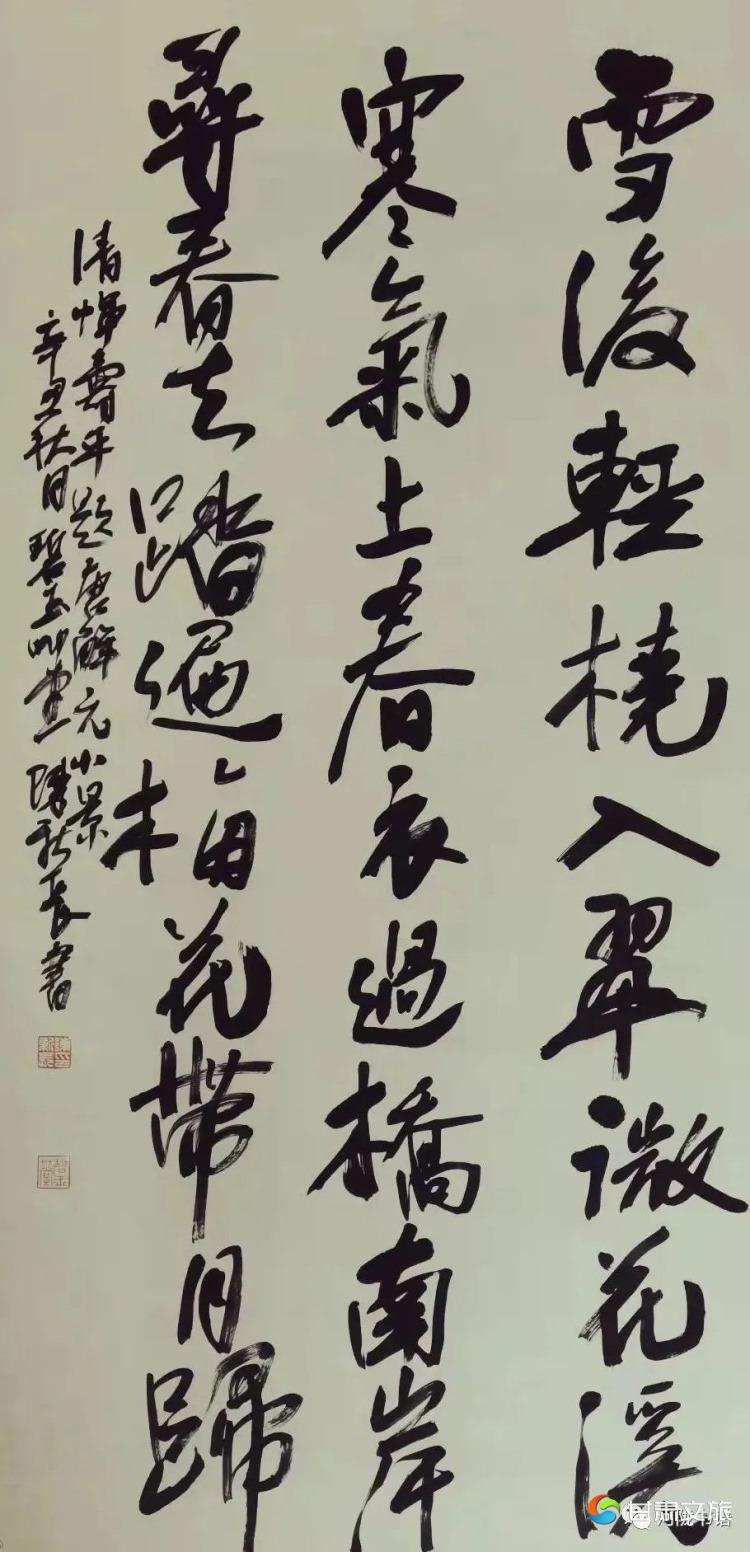 雪後輕橈入翠微花溪
寒氣上春衣過橋南岸
尋春去踏遍梅花帶月歸
清惲壽平題唐解元小景
辛丑秋日碧玉
書
甘肃文旅
河陇书语